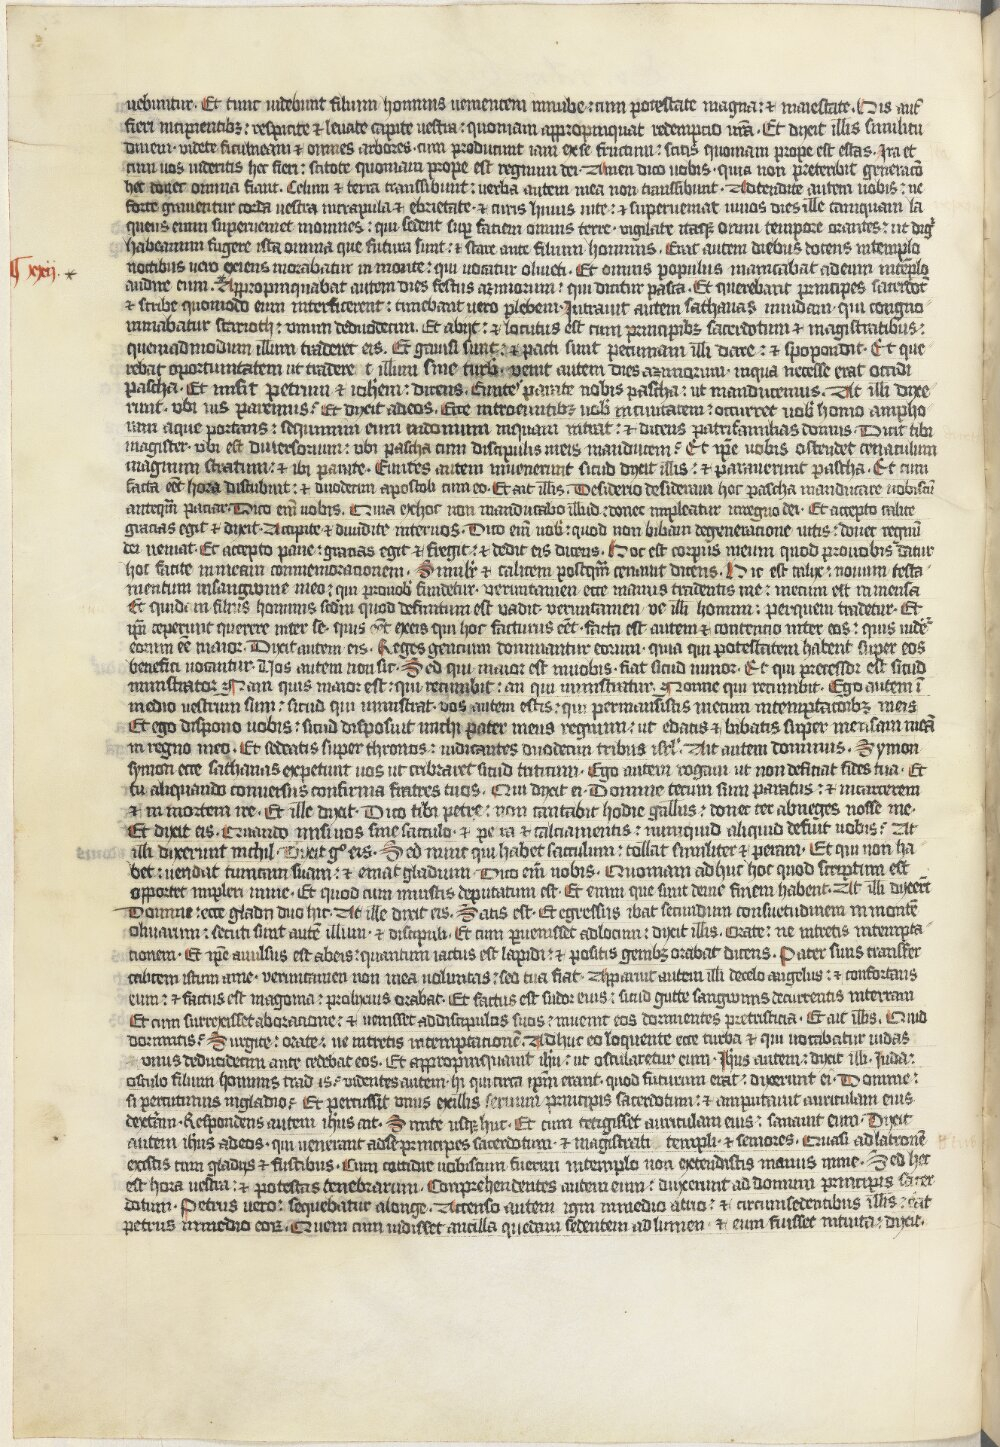 uebuntur. Et tunc uidebunt filium hominis uenientem in nube: cum potestate magna: ⁊ maiestate. His aut̄
fieri incipientibꝫ: respicite ⁊ leuate capita vestra: quoniam appropinquat redemptio v̄ra. Et dixit illis similitu
dinem. videte ficulneam ⁊ omnes arbores. cum producunt iam ex se fructum: scitis quoniam prope est estas. Ita et
cum vos uideritis hec fieri: scitote quoniam prope est regnum dei. Amen dico uobis. quia non preteribit generacō
hec donec omnia fiant. Celum ⁊ terra transibunt: verba autem mea non transibunt. Adtendite autem uobis: ne
forte grauentur corda vestra in crapula ⁊ ebrietate. ⁊ curis huius uite: ⁊ superueniat in uos dies ille tamquam la
queus enim superueniet in omnes: qui sedent suꝑ faciem omnis terre. vigilate itaqꝫ om̄i tempore orantes: ut dig
habeamini fugere ista omnia que futura sunt: ⁊ stare ante filium hominis. Erat autem diebus docens in templo
noctibus vero exiens morabatur in monte: qui uocatur oliueti. Et omnis populus manicabat ad eum in templo
xxij.
audire eum. Appropinquabat autem dies festus azimorum: qui dicitur pasca. Et querebant principes sacerdot̄
⁊ scribe quomodo eum interficerent: timebant vero plebem. Intrauit autem sathanas in iudam. qui cogno
minabatur scarioth: vnum de duodecim. Et abijt: ⁊ locutus est cum principibꝫ sacerdotum ⁊ magistratibus:
quemadmodum illum traderet eis. Et gauisi sunt: ⁊ pacti sunt pecuniam illi dare: ⁊ spopondit. Et que
rebat oportunitatem ut traderet illum sine turb. venit autem dies azimorum. in qua necesse erat occidi
pascha. Et misit petrum ⁊ ioh̄em: dicens. Euntes parate nobis pascha: ut manducemus. At illi dixe
runt. vbi uis paremus? Et dixit ad eos. Ecce introeuntibꝫ uob̄ in ciuitatem: occurret uob̄ homo ampho
ram aque portans: sequimini eum in domum in quam intrat: ⁊ dicetis patrifamilias domus. Dicit tibi
magister. vbi est diuersorium: vbi pascha cum discipulis meis manducem? Et ip̄e vobis ostendet cenaculum
magnum stratum: ⁊ ibi parate. Euntes autem inuenerunt sicud dixit illis: ⁊ parauerunt pascha. Et cum
facta eēt hora discubuit: ⁊ duodecim apostoli cum eo. Et ait illis. Desiderio desideraui hoc pascha manducare uobiscū
anteqꝫ paciar. Dico em̄ vobis. Quia ex hoc non manducabo illud: donec impleatur in regno dei. Et accepto calice
gracias egit ⁊ dixit. Accipite ⁊ diuidite inter vos. Dico em̄ uob̄: quod non bibam de generatione uitis: donec regnū
dei ueniat. Et accepto pane: gracias egit ⁊ fregit: ⁊ dedit eis dicens. Hoc est corpus meum quod pro uobis datur
hoc facite in meam commemorationem. Simil̄r ⁊ calicem postqꝫ cenauit dicens. Hic est calix: nouum testa
mentum in sanguine meo: qui pro uob̄ fundetur. veruntamen ecce manus tradentis me: mecum est in mensa
Et quidem filius hominis scdm quod definitum est vadit. veruntamen ve illi homini: per quem tradetur. Et
ip̄i ceperunt querere inter se. quis eēt ex eis qui hoc facturus eēt. facta est autem ⁊ contencio inter eos: quis uidēr
eorum eē maior. Dixit autem eis. Reges gencium dominantur eorum. quia qui potestatem habent super eos
benefici vocantur. Uos autem non sic. Sed qui maior est in uobis. fiat sicud iunior. Et qui precessor est sicud
ministrator. Nam quis maior est: qui recumbit: an qui ministratur. Nonne qui recumbit. Ego autem ī
medio vestrum sum: sicud qui ministrat. vos autem estis: qui permansistis mecum in temptacōibꝫ meis
Et ego dispono uobis: sicud disposuit michi pater meus regnum: ut edatis ⁊ bibatis super mensam meā
in regno meo. Et sedeatis super thronos: iudicantes duodecim tribus isrl̄. Ait autem dominus. Symon
symon ecce sathanas expetiuit uos ut cribraret sicud triticum. Ego autem rogaui ut non deficiat fides tua. Et
tu aliquando conuersus confirma fratres tuos. Qui dixit ei. Domine tecum sum paratus: ⁊ in carcerem
⁊ in mortem ire. Et ille dixit. Dico tibi petre: non cantabit hodie gallus: donec ter abneges nosse me.
Et dixit eis. Quando misi vos sine sacculo. ⁊ pera ⁊ calciamentis: numquid aliquid defuit uobis? At
illi dixerunt nichil. Dixit gͦ eis. Sed nunc qui habet sacculum: tollat similiter ⁊ peram. Et qui non ha
bet: uendat tunicam suam: ⁊ emat gladium. Dico em̄ uobis. Quoniam adhuc hoc quod scriptum est
opportet impleri in me. Et quod cum iniustis deputatum est. Et enim que sunt de me finem habent. At illi dixer̄t
Domine: ecce gladij duo hic. At ille dixit eis. Satis est. Et egressus ibat secundum consuetudinem in montē
oliuarum: secuti sunt autē illum: ⁊ discipuli. Et cum ꝑuenisset ad locum: dixit illis. Orate: ne intretis in tempta
tionem. Et ip̄e auulsus est ab eis: quantum iactus est lapidis: ⁊ positis genibꝫ orabat dicens. Pater si uis transfer
calicem istum a me. veruntamen non mea voluntas: sed tua fiat. Apparuit autem illi de celo angelus: ⁊ confortans
eum: ⁊ factus est in agonia: prolixius orabat. Et factus est sudor eius: sicud gutte sanguinis decurrentis in terram
Et cum surrexisset ab oratione: ⁊ uenisset ad discipulos suos: inuenit eos dormientes pre tristicia. Et ait illis. Quid
dormitis? Surgite: orate: ne intretis in temptacionē. Adhuc eo loquente ecce turba ⁊ qui uocabatur iudas
vnus de duodecim antecedebat eos. Et appropinquauit ih̄u: ut oscularetur eum. Ih̄us autem: dixit illi. Iuda:
osculo filium hominis tradis? videntes autem hi qui circa ip̄m erant. quod futurum erat: dixerunt ei. Domine:
si percutimus in gladio? Et percussit vnus ex illis seruum principis sacerdotum: ⁊ amputauit auriculam eius
dextram. Respondens autem ih̄us ait. Sinite usqꝫ huc. Et cum tetigisset auriculam eius: sanauit eum. Dixit
autem ih̄us ad eos. qui venerant ad se principes sacerdotum. ⁊ magistrati templi ⁊ seniores. Quasi ad latronē
existis cum gladijs ⁊ fustibus. Cum cottidie vobiscum fuerim in templo non extendistis manus in me. Sed hec
est hora vestra: ⁊ potestas tenebrarum. Conprehendentes autem eum: duxerunt ad domum principis sacer
dotum. Petrus vero: sequebatur a longe. Accenso autem igni in medio atrio: ⁊ circumsedentibus illis: erat
petrus in medio eoꝝ. Quem cum uidisset ancilla quedam sedentem ad lumen ⁊ eum fuisset intuita: dixit.